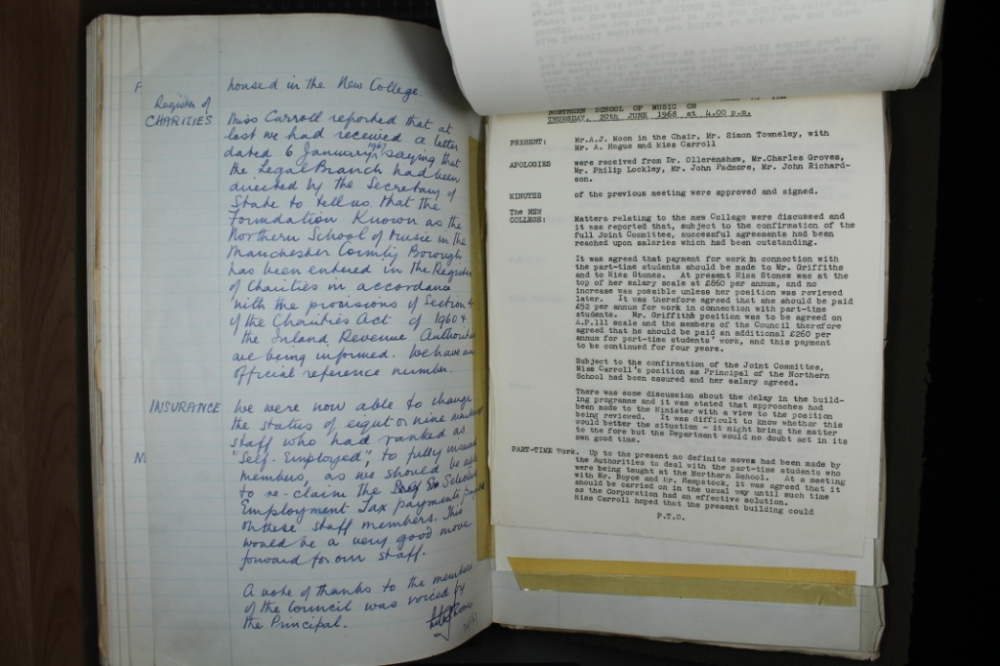 housed in the New College.
Register of
CHARITIES
Miss Carroll reported that at
last we had received a letter
dated 6 January 1967 saying that
the Legal Branch had been
directed by the Secretary of
State to tell us that the
Foundation Known as the
Northern School of Music in the
Manchester County Borough
has been entered in the Register
of Charities in accordance
with the provisions of Section 4
of the Charities Act of 1960 &
the Inland Revenue Authorities
are being informed. We have an
official reference number.
INSURANCE
We were now able to change
the status of eight or nine members
staff who had ranked as
"Self-Employed", to fully insured
members, as we should be able
to re-claim the Selective
Employment Tax payments
on these staff members. This
would be a very good move
forward for our staff.
A vote of thanks to the members
of the Council was voiced by
the Principal.
F
M
NORTHERN SCHOOL OF MUSIC ON
THURSDAY, 20th JUNE 1968 at 4.00 p.m.
PRESENT: Mr.A.J. Moon in the Chair, Mr. Simon Towneley, with
Mr. A. Hague and Miss Carroll
APOLOGIES were received from Dr. Ollerenshaw, Mr.Charles Groves,
Mr. Philip Lockley, Mr. John Padmore, Mr. John Richard-
son.
MINUTES of the previous meeting were approved and signed.
The NEW
COLLEGE: Matters relating to the new College were discussed and
it was reported that, subject to the confirmation of the
full Joint Committee, successful agreements had been
reached upon salaries which had been outstanding.
It was agreed that payment for work in connection with
the part-time students should be made to Mr. Griffiths
and to Miss Stones. At present Miss Stones was at the
top of her salary scale at £860 per annum, and no
increase was possible unless her position was reviewed
later. It was therefore agreed that she should be paid
£52 per annum for work in connection with part-time
students. Mr. Griffiths position was to be agreed on
A.P.111 scale and the members of the Council therefore
agreed that he should be paid an additional £260 per
annum for part-time students' work, and this payment
to be continued for four years.
Subject to the confirmation of the Joint Committee,
Miss Carroll's position as Principal of the Northern
School had been assured and her salary agreed.
There was some discussion about the delay in the build-
ing programme and it was stated that approaches had
been made to the Minister with a view to the position
being reviewed. It was difficult to know whether this
would better the situation - it might bring the matter
to the fore but the Department would no doubt act in its
own good time.
PART-TIME Work. Up to the present no definite moves had been made by
the Authorities to deal with the part-time students who
were being taught at the Northern School. At a meeting
with Mr. Royce and Mr. Hempstock, it was agreed that it
should be carried on in the usual way until such time
as the Corporation had an effective solution.
Miss Carroll hoped that the present building could
P.T.O.